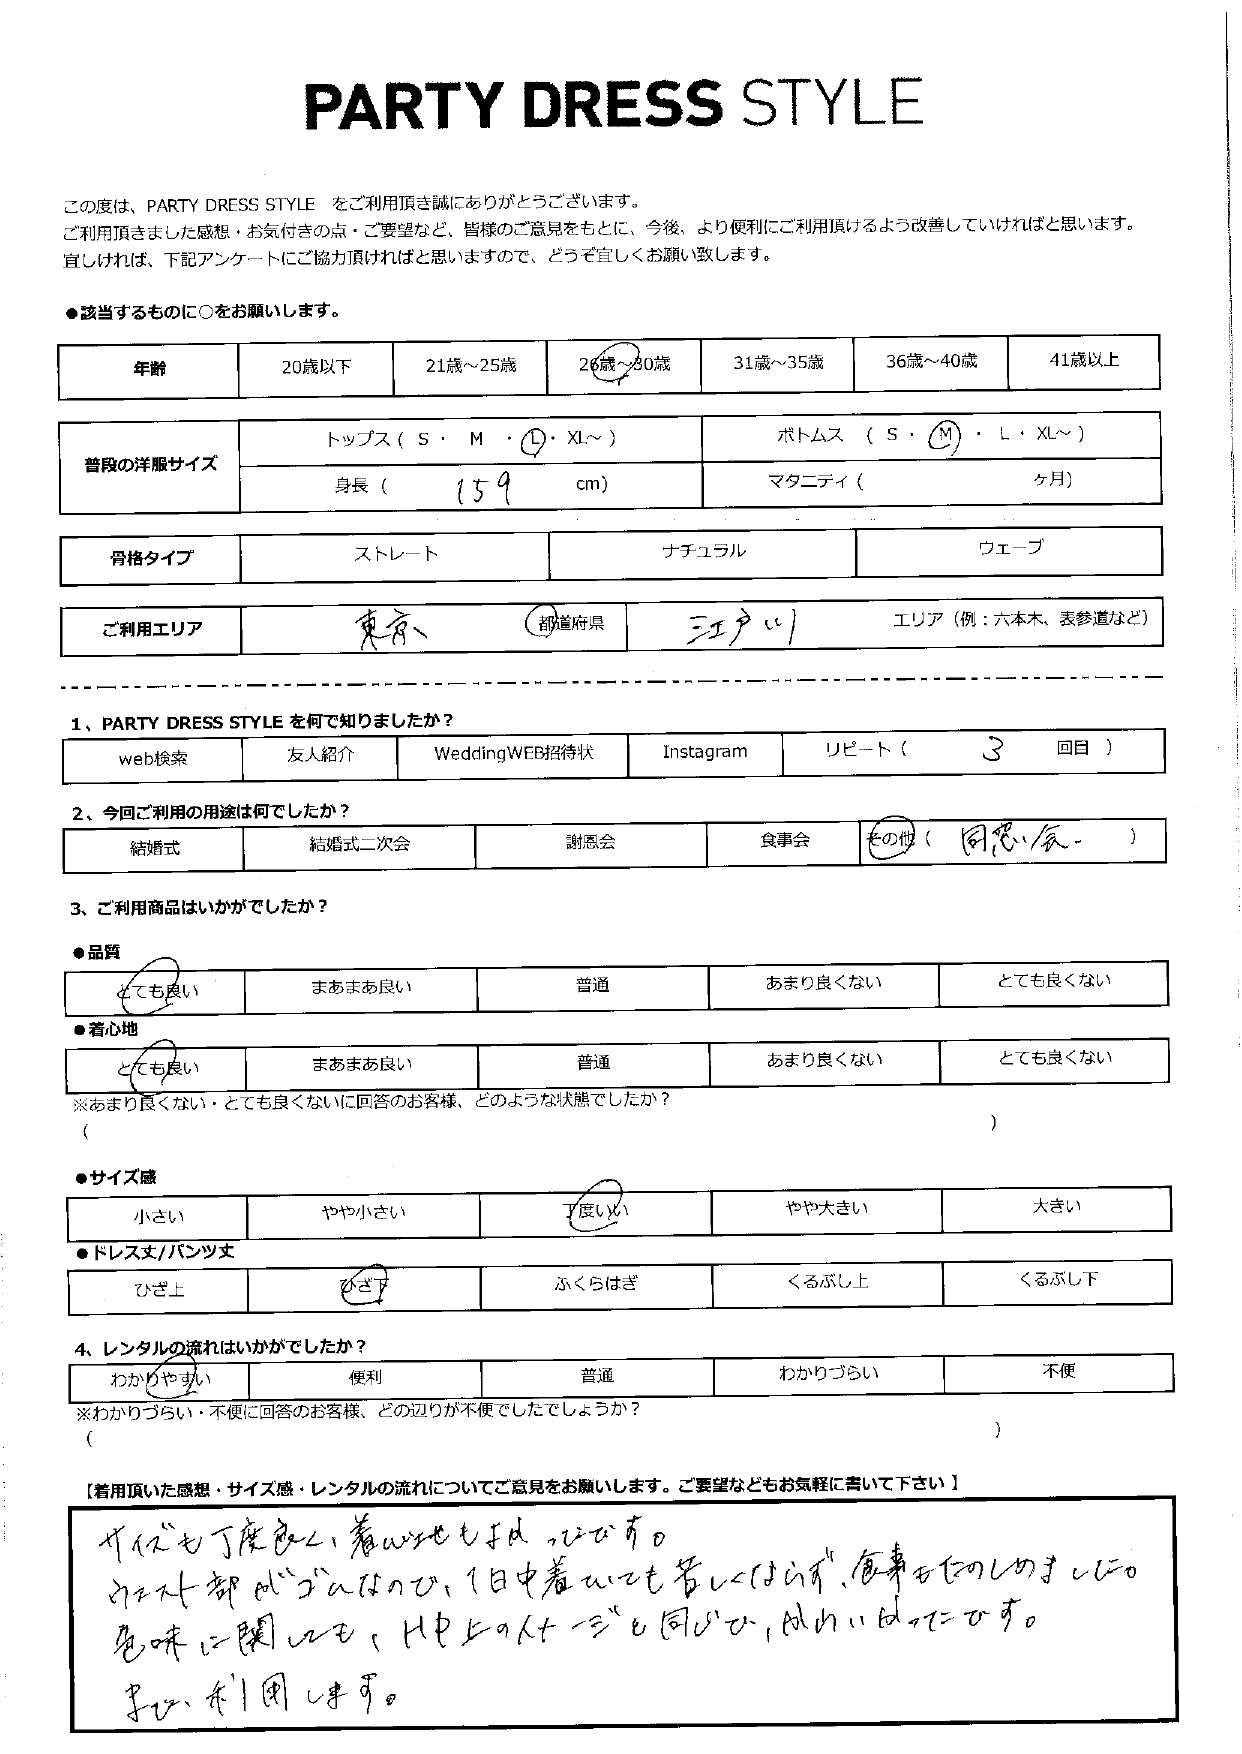 PARTY DRESS STYLE
この度は、PARTY DRESS STYLE をご利用頂き誠にありがとうございます。
ご利用頂きました感想・お気付きの点・ご要望など、皆様のご意見をもとに、今後、より便利にご利用頂けるよう改善していければと思います。
宜しければ、下記アンケートにご協力頂ければと思いますので、どうぞ宜しくお願い致します。
●該当するものに○をお願いします。
年齢 20歳以下 21歳～25歳 26歳～30歳 31歳～35歳 36歳～40歳 41歳以上
普段の洋服サイズ トップス( S ・ M ・ L ・ XL～ ) ボトムス ( S ・ M ・ L ・ XL～ )
身長 ( 159 cm) マタニティ ( ヶ月)
骨格タイプ ストレート ナチュラル ウェーブ
ご利用エリア 東京 都道府県 江戸川 エリア（例：六本木、表参道など）
1、PARTY DRESS STYLE を何で知りましたか？
web検索 友人紹介 WeddingWEB招待状 Instagram リピート ( 3 回目 )
2、今回ご利用の用途は何でしたか？
結婚式 結婚式二次会 謝恩会 食事会 その他 ( 同窓会 )
3、ご利用商品はいかがでしたか？
●品質
とても良い まあまあ良い 普通 あまり良くない とても良くない
●着心地
とても良い まあまあ良い 普通 あまり良くない とても良くない
※あまり良くない・とても良くないに回答のお客様、どのような状態でしたか？
( )
●サイズ感
小さい やや小さい 丁度いい やや大きい 大きい
●ドレス丈/パンツ丈
ひざ上 ひざ下 ふくらはぎ くるぶし上 くるぶし下
4、レンタルの流れはいかがでしたか？
わかりやすい 便利 普通 わかりづらい 不便
※わかりづらい・不便に回答のお客様、どの辺りが不便でしたでしょうか？
( )
【着用頂いた感想・サイズ感・レンタルの流れについてご意見をお願いします。ご要望などもお気軽に書いて下さい 】
サイズも丁度良く、着心地もよかったです。
ウエスト部がゴムなので、1日中着ていても苦しくならず、食事もたのしめました。
色味に関しても、HP上のイメージと同じで、かわいかったです。
また、利用します。